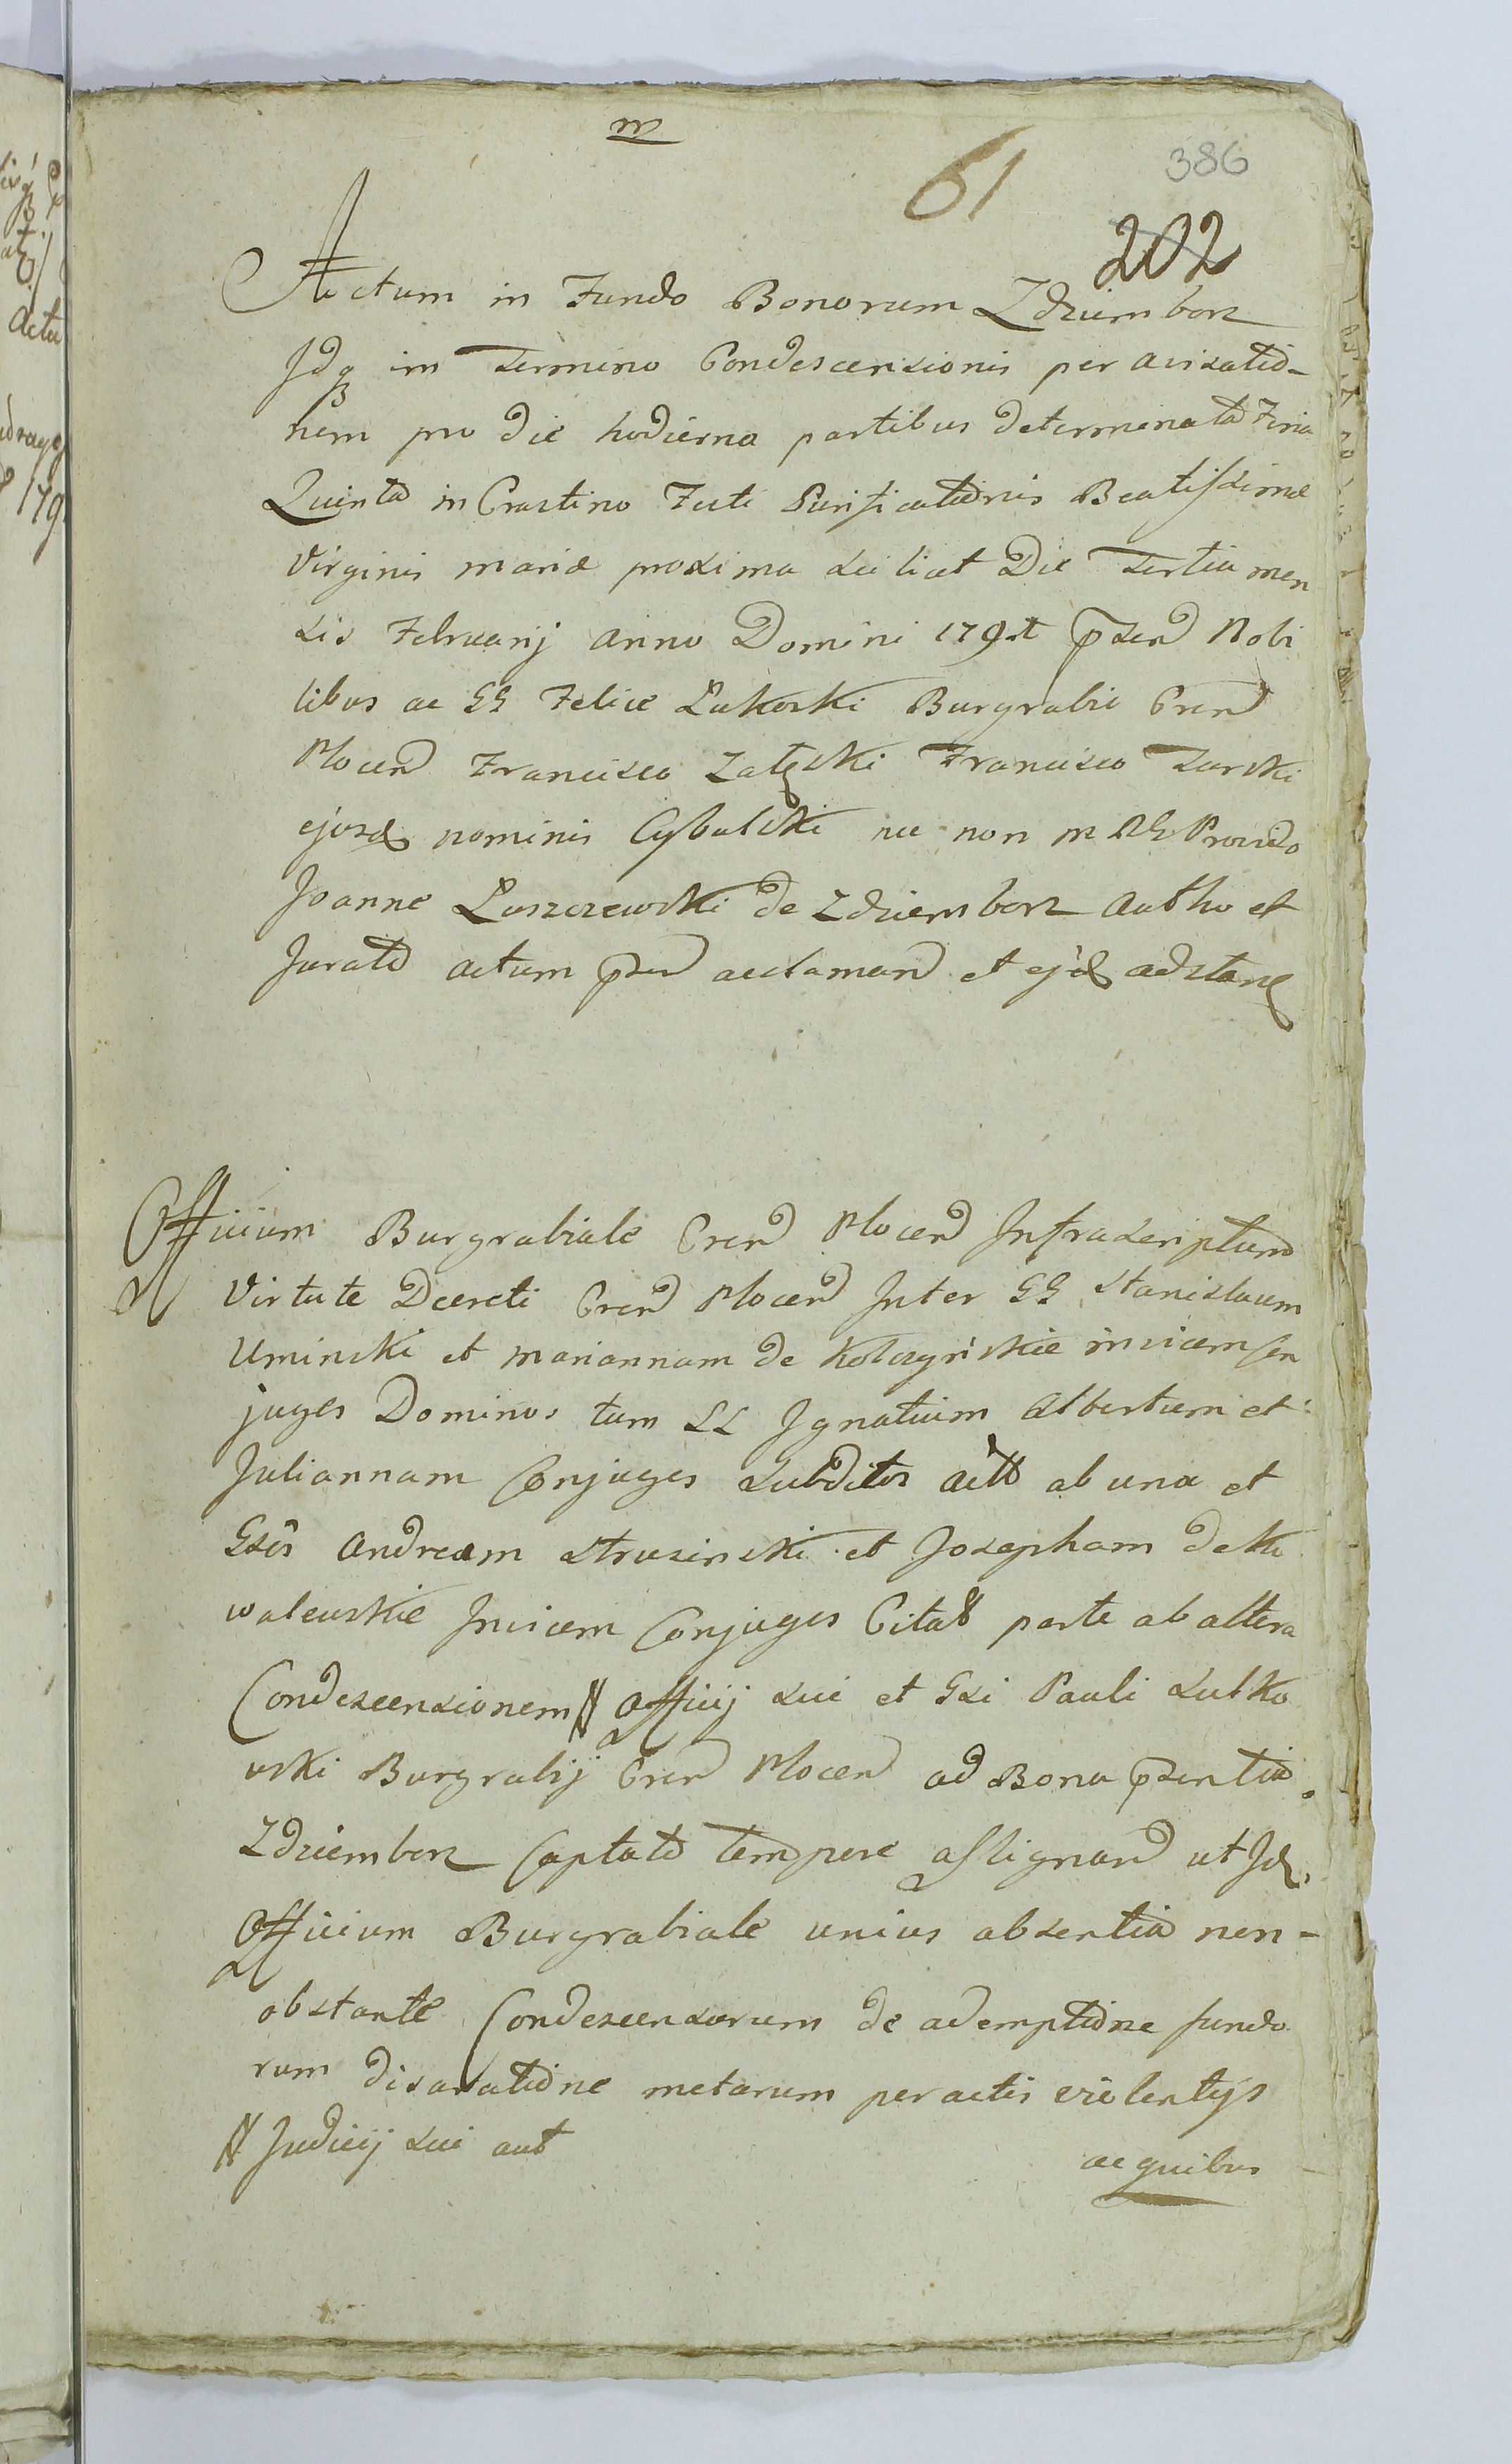 m
61
386
202
Actum in Fundo Bonorum Zdziemborz
Idq3 in Termino Condescensionis per avisatio-
nem pro die hodierna partibus determinata Feria
Quinta in Crastino Festi Purificationis Beatissimæ
Virginis mariæ proxima scilicet Die Tertia men
sis Februarij Anno Domini 179 psen Nobi
libus ac GG Felice Lukoski Burgrabio Cren
Plocen Francisco Zaleski Francisco Turski
ejusd nominis Cybulski nec non Provido
Joanne Laszczewski de Zdziemborz Autho et
Jurato actum psen acclaman et ejd adstan
Officium Burgrabiale Cren Plocen Infrascriptum
Virtute Decreti Cren Plocen Inter GG Stanislaum
Uminski et mariannam de Kolczyńskie invicem Con
juges Dominos tum LL Ignatium Albertum et
Juliannam Conjuges Subditos act ab una et
Gsos Andream Strusinski et Josepham de Ko
walewskie Invicem Conjuges Citat parte ab altera
Condescensionem # Officij sui et Gsi Pauli Lutko
wski Burgrabij Cren Plocen ad Bona psentia
Zdziemborz Captato tempore assignan ut Id
Officium Burgrabiale unius absentia non-
obstante Condescensurum de ademptione fundo
rum disaratione metarum peractis violentijs
# Judicij sui aut
ac quibus